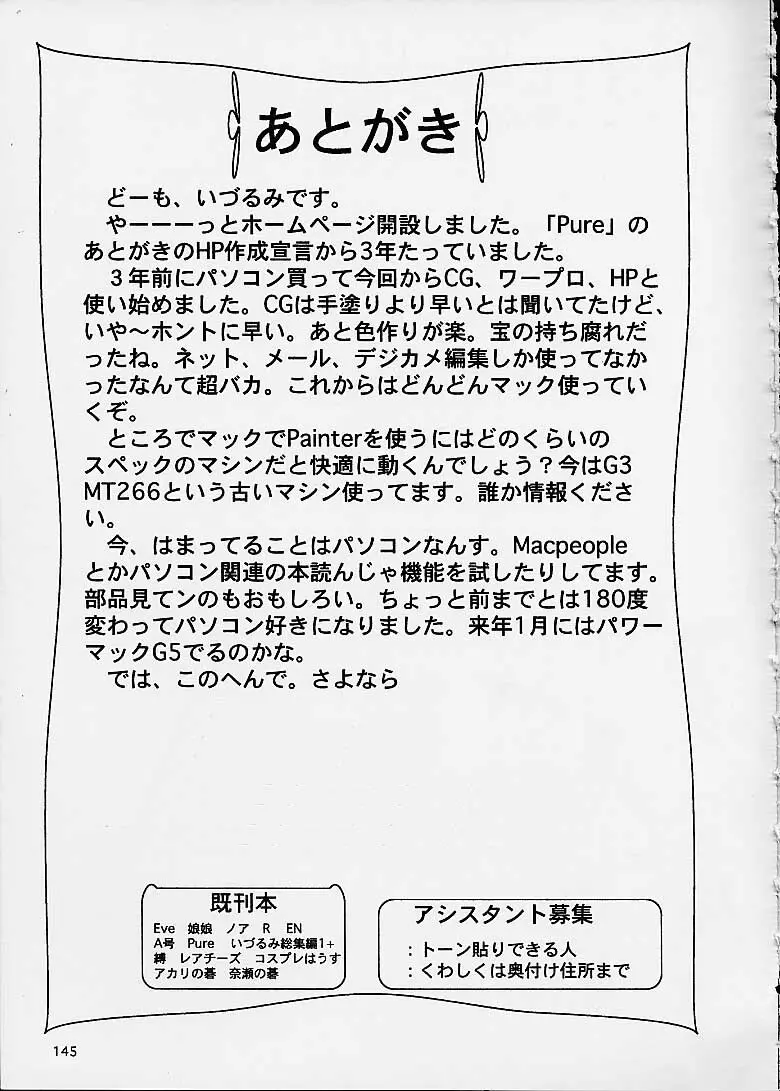 あとがき
どーも、いづるみです。
やーーーっとホームページ開設しました。「Pure」の
あとがきのHP作成宣言から3年たっていました。
３年前にパソコン買って今回からCG、ワープロ、HPと
使い始めました。CGは手塗りより早いとは聞いてたけど、
いや〜ホントに早い。あと色作りが楽。宝の持ち腐れだ
ったね。ネット、メール、デジカメ編集しか使ってなか
ったなんて超バカ。これからはどんどんマック使ってい
くぞ。
ところでマックでPainterを使うにはどのくらいの
スペックのマシンだと快適に動くんでしょう？今はG3
MT266という古いマシン使ってます。誰か情報くださ
い。
今、はまってることはパソコンなんす。Macpeople
とかパソコン関連の本読んじゃ機能を試したりしてます。
部品見てンのもおもしろい。ちょっと前までとは180度
変わってパソコン好きになりました。来年1月にはパワー
マックG5でるのかな。
では、このへんで。さよなら
既刊本
Eve 娘娘 ノア R EN
A号 Pure いづるみ総集編1+
縛 レアチーズ コスプレはうす
アカリの碁 奈瀬の碁
アシスタント募集
：トーン貼りできる人
：くわしくは奥付け住所まで
145